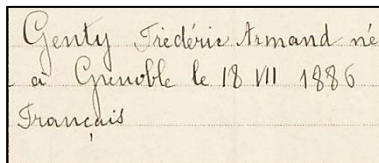 Genty Frédéric Armand né
à Grenoble le 18 VII 1886
Français